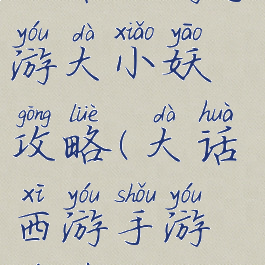 yóu dà xiǎo yāo
游大小妖
gōng lüè dà huà
攻略(大话
xī yóu shǒu yóu
西游手游